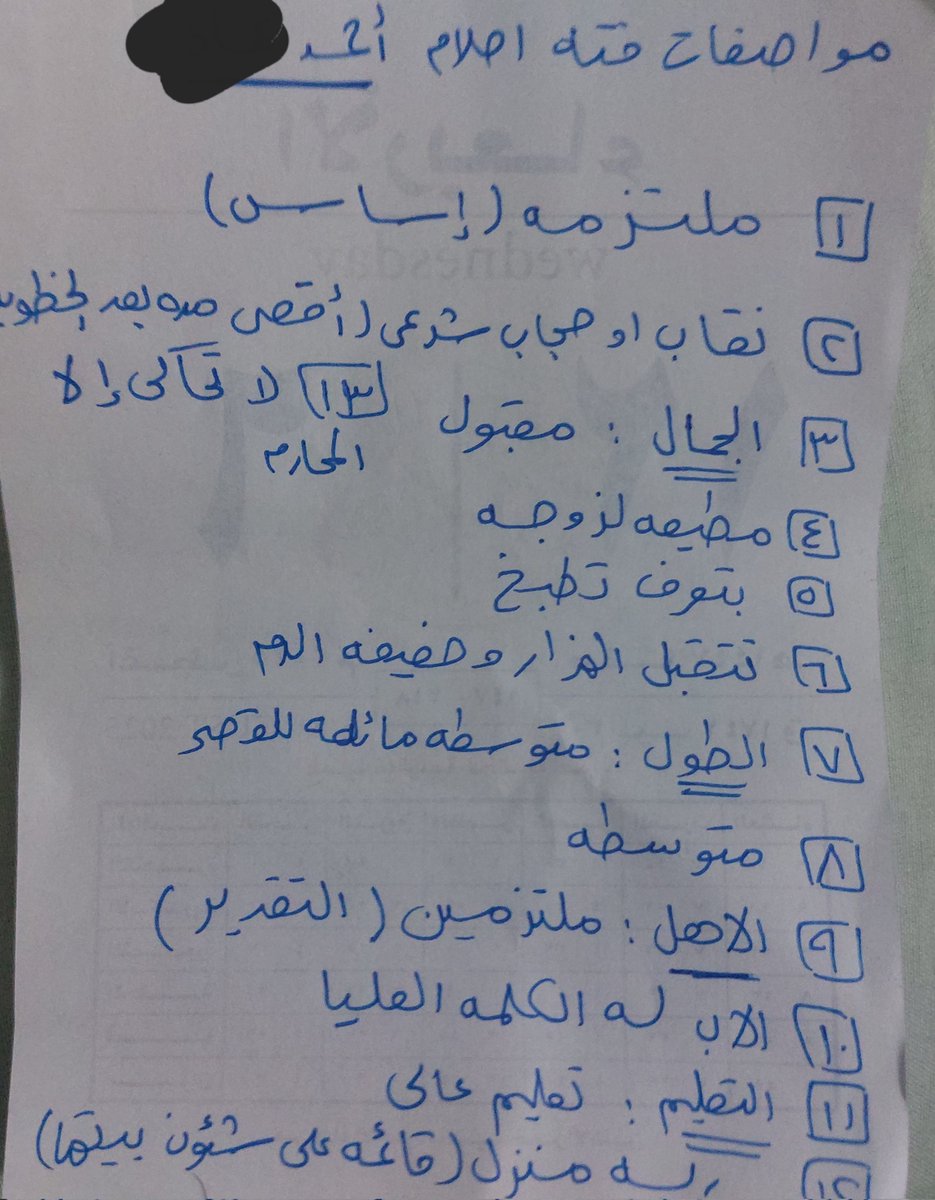 مواصفات فته احلام أحمد
الأربعاء
wednesday
١ ملتزمه (إساس)
٢ نقاب او حجاب شرعى (أقصى مده بعد الخطوبه
٣ الجمال : مقبول
١٣ لا تكالى إلا المحارم
٤ مطيعه لزوجه
٥ بتعرف تطبخ
٦ تتقبل الهزار وخفيفه الدم
٧ الطول : متوسطه مائله للقصر
٨ متوسطه
٩ الاهل : ملتزمين (التقدير)
١٠ الاب له الكلمه العليا
١١ التعليم : تعليم عالى
منزل (قائمه على شئون بيتها)